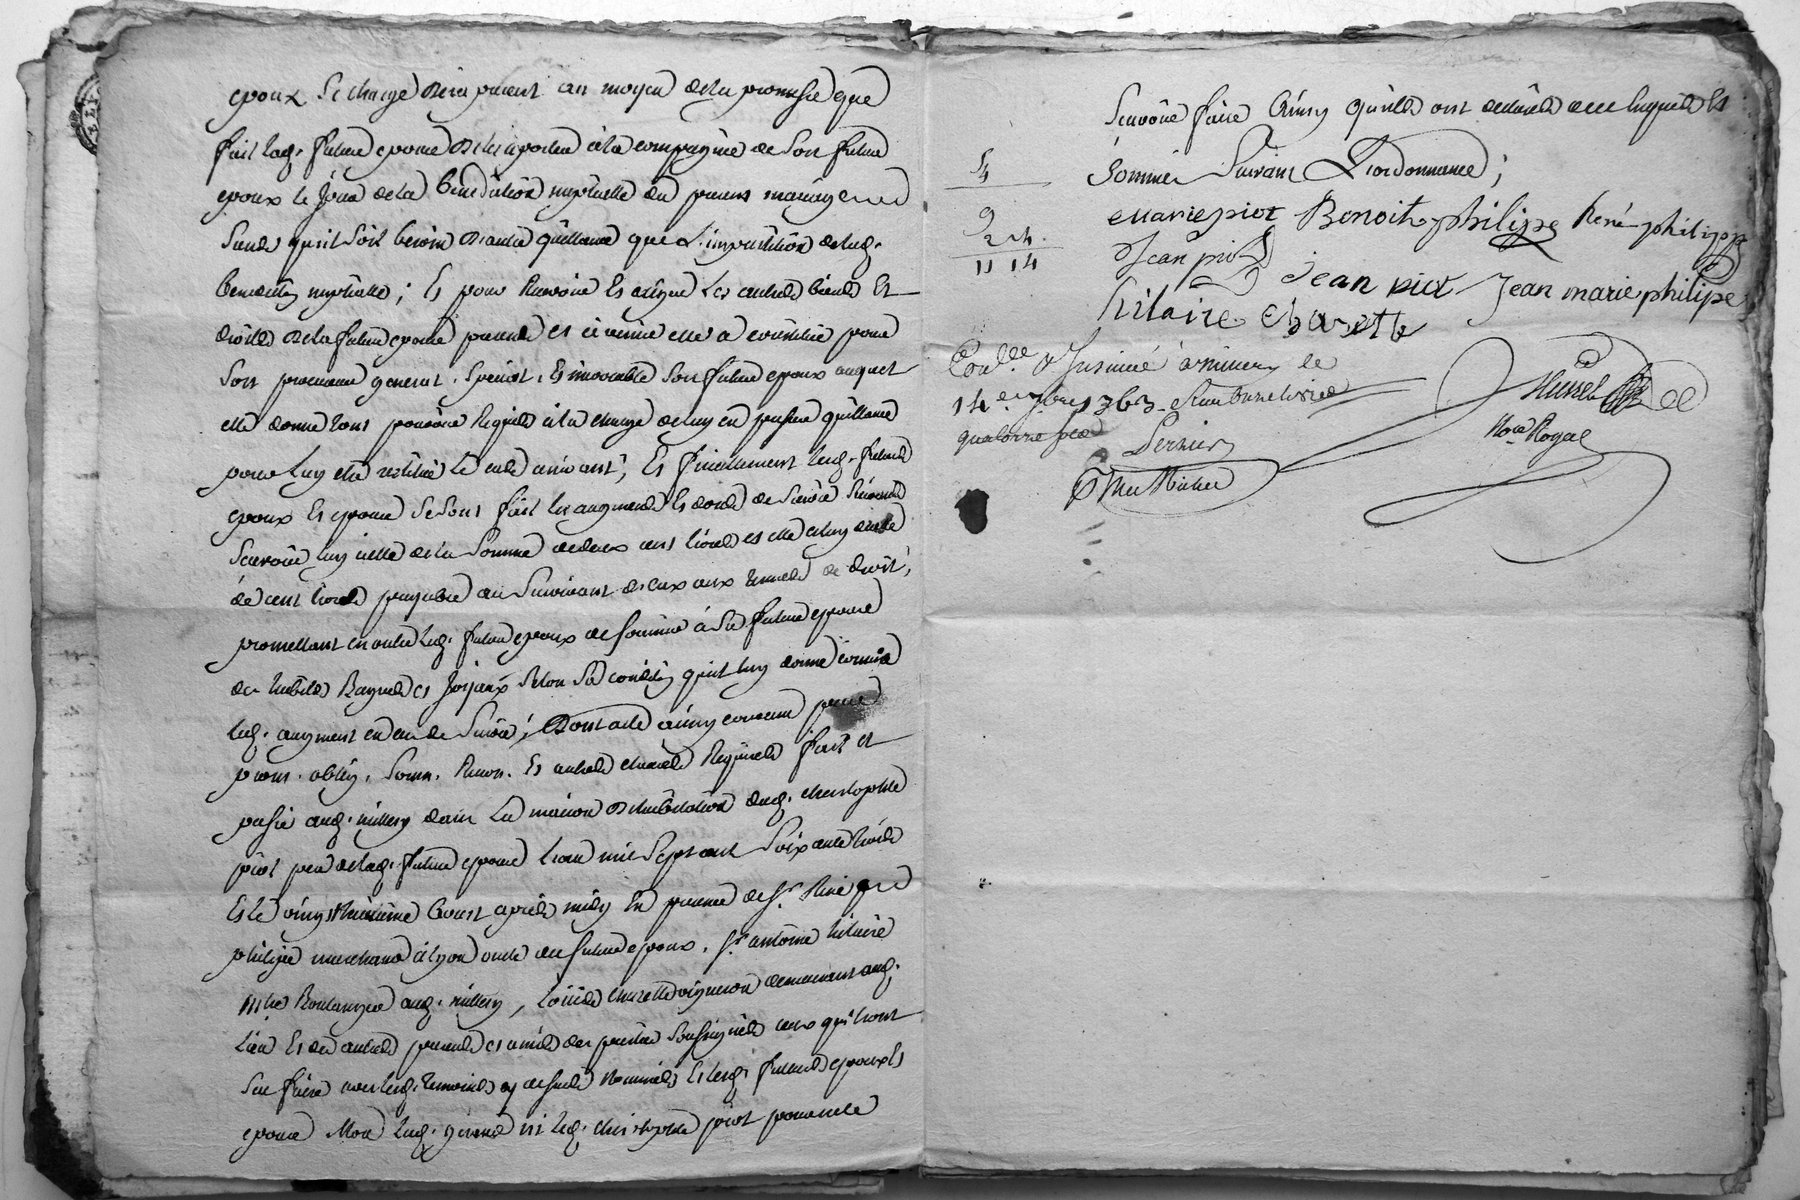 epoux se charge dès a présent au moyen de la promesse que
fait lad. future epouse de les aporter à la compagnie de son futur
epoux le jour de la benediction nuptialle du present mariage
sans qu'il soit besoin d'autre quittance que l'impartition de lad.
benediction nuptialle ; et pour recevoir et exiger les autres biens et
droits de la future epouse presents et à venir elle a constitué pour
son procureur general, special, et irrevocable son futur epoux auquel
elle donne tous pouvoirs requis à la charge de luy en passer quittance
pour luy etre restitué le cas arrivant ; Et finallement lesd. futurs
epoux et epouse se sont fait les augments et dons de survie suivants
scavoir luy à elle de la somme de deux cens livres et elle à luy
de cent livres payable au survivant d'eux aux termes de droit ;
promettant en outre led. futur epoux de fournir à sa future epouse
des habits bagues et joyaux selon sa condition qu'il luy donne comme
led. augment en cas de survie ; Dont acte ainsy convenu
prom. oblig. soum. renon. et autres clauses requises fait et
passé aud. millery dans la maison d'habitation dud. christophle
piot pere de lad. future epouse l'an mil sept cent soixante trois
et le vingt huitième aoust après midy en presence de sr. René
philipe marchand à lyon oncle du futur epoux, sr. antoine hilaire
mtre Boulanger aud. millery, Louis charette vigneron demeurant aud.
lieu et des autres parents et amis des parties soussignés ceux qui l'ont
sçu faire avec lesd. temoins cy dessus nommés et lesd. futurs epoux et
epouse Non led. et led. christophle piot pour ne le
scavoir faire ainsy qu'ils ont declaré de ce enquis et
sommés suivant L'ordonnance ;
54
9
2 14.
11 14
marie piot Benoit philippe René philippe
Jean piot
jean piot Jean marie philipe
hilaire charette
Conllé & Insinué à millery le
14e 7bre 1763
quatorze sols
Nore Royal